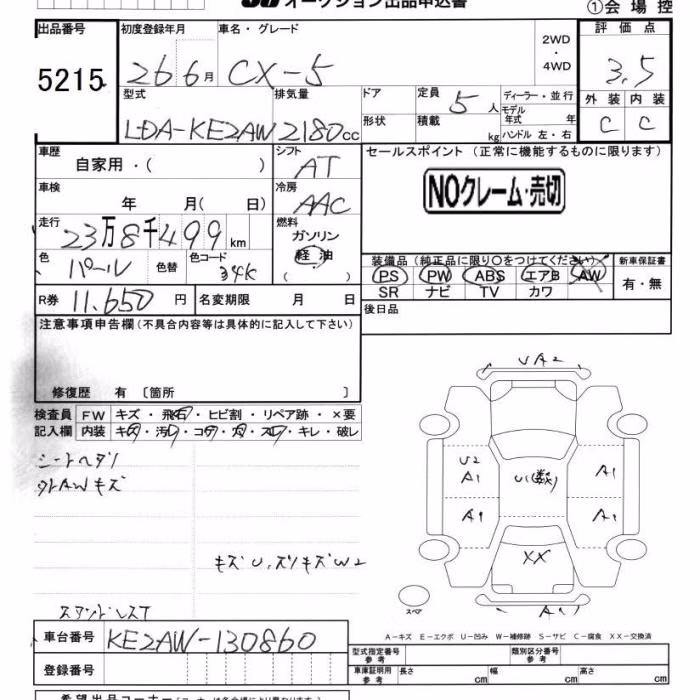 オークション出品申込書
①会場控
出品番号 初度登録年月 車名・グレード 評価点
5215 26 6月 CX-5 2WD ・ 4WD 3.5
型式 排気量 ドア 定員 5人 ディーラー・並行 外装 内装
LDA-KE2AW 2180cc 形状 積載 kg モデル年式 年 ハンドル 左・右 C C
車歴 自家用・( ) シフト AT セールスポイント (正常に機能するものに限ります)
車検 年 月( 日) 冷房 AAC NOクレーム・売切
走行 23万8千499km 燃料 ガソリン 軽油 ( )
色 パール 色替 色コード 34K
装備品 (純正品に限り〇をつけてください) 新車保証書
PS PW ABS エアB AW 有・無
SR ナビ TV カワ
R券 11.650円 名変期限 月 日 後日品
注意事項申告欄 (不具合内容等は具体的に記入して下さい)
修復歴 有 〔箇所 〕
検査員 FW キズ・飛石・ヒビ割・リペア跡・×要
記入欄 内装 キズ・汚レ・コゲ・穴・スレ・キレ・破レ
シートヘタリ
タトAWキズ
キズU,ズリキズW2
UA2
U2
A1 U1(数) A1
A1 A1
XX
スペア A1
A-キズ E-エクボ U-凹み W-補修跡 S-サビ C-腐食 XX-交換済
車台番号 KE2AW-130860
型式指定番号 参考 類別区分番号 参考
登録番号
車庫証明用 参考 長さ cm 幅 cm 高さ cm
希望出品コーナー